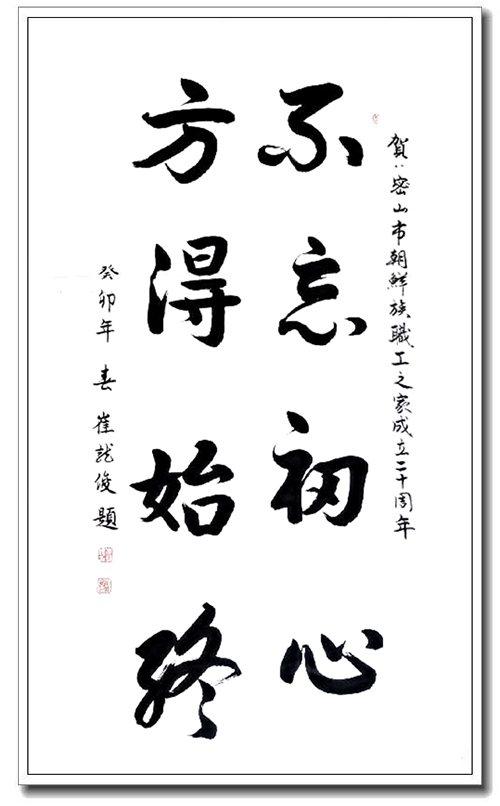 賀：密山市朝鮮族職工之家成立二十周年
不忘初心
方得始終
癸卯年春崔龍俊題